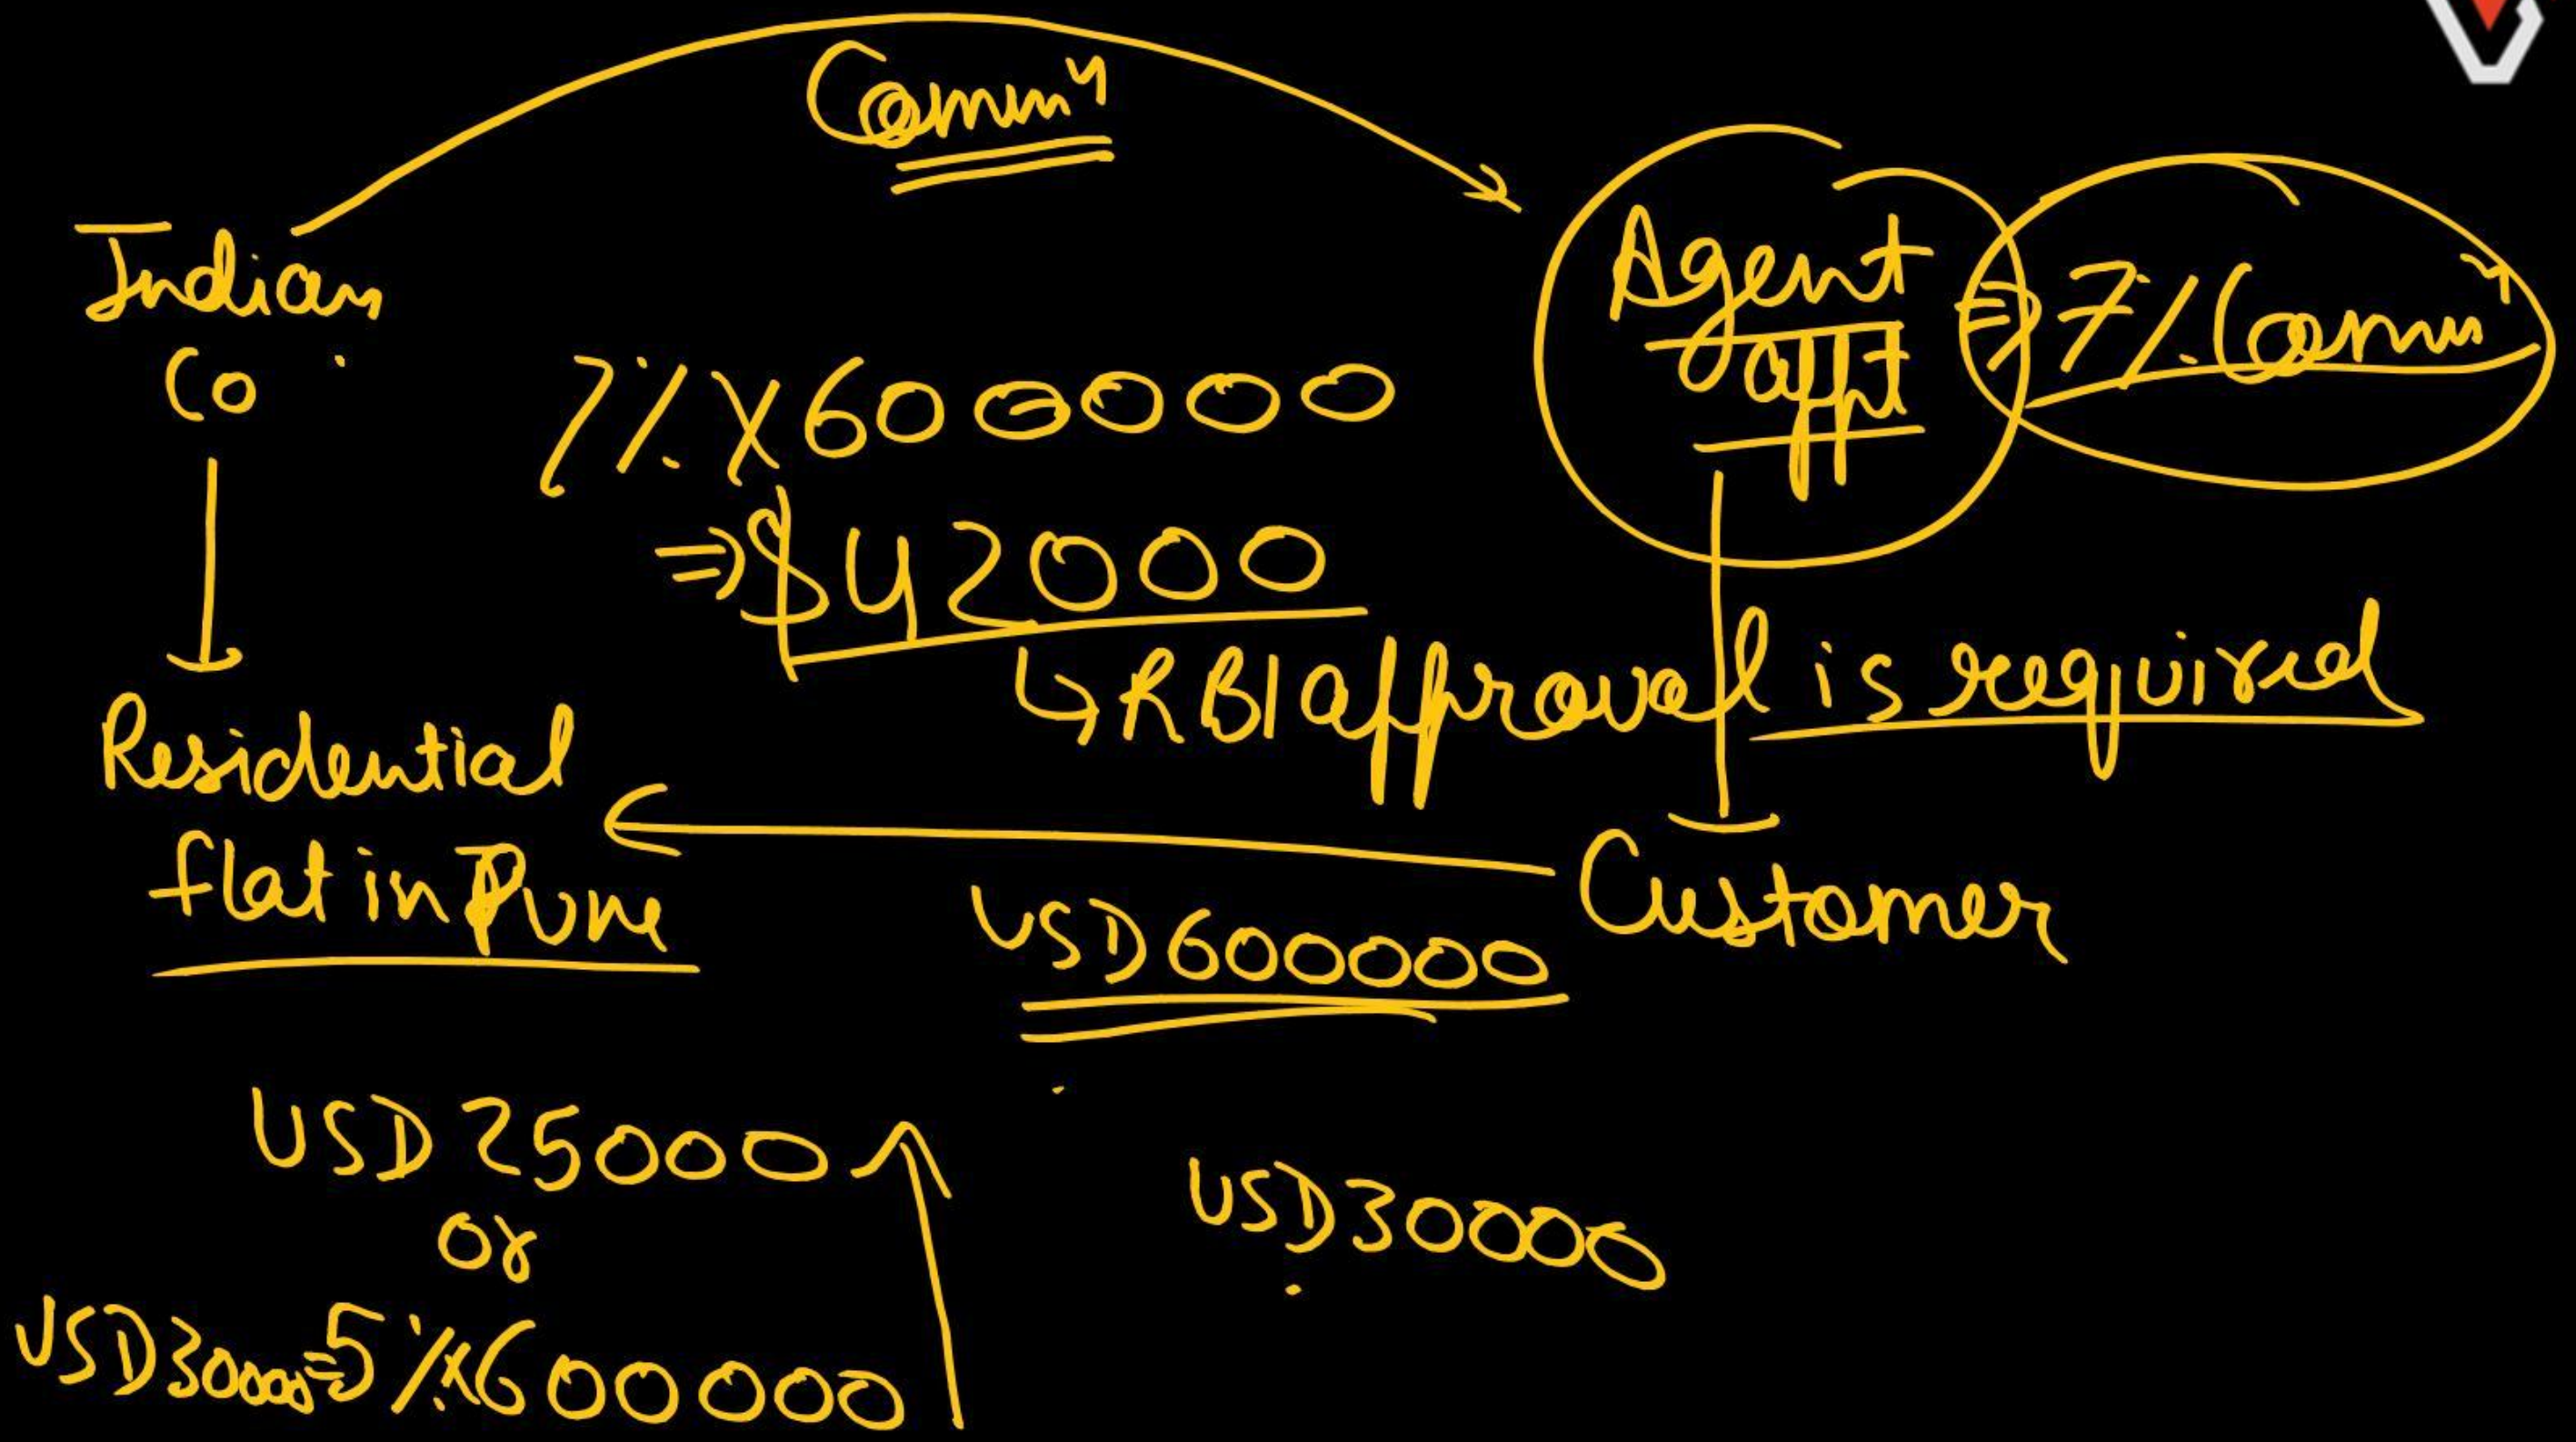 Commⁿ
Indian
Co
Agent
appt
⇒ 7% Commⁿ
7% X 600000
⇒ $42000
↳ RBI approval is required
Residential
flat in Pune
Customer
USD 600000
USD 25000
or
USD 30000 = 5% x 600000
USD 30000